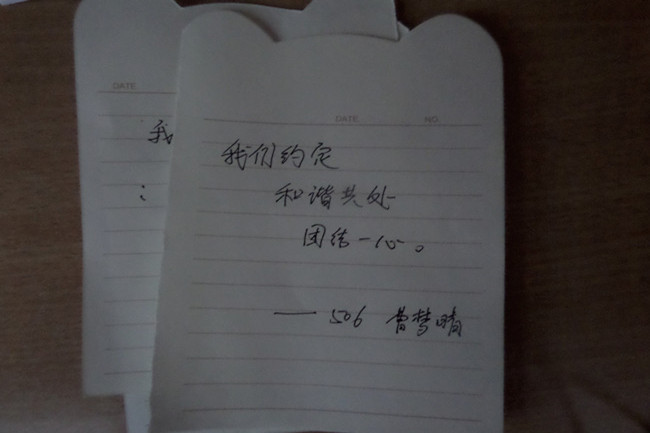 DATE
我
DATE NO.
我们约定
和谐共处
团结一心。
—— 506 曹梦晴